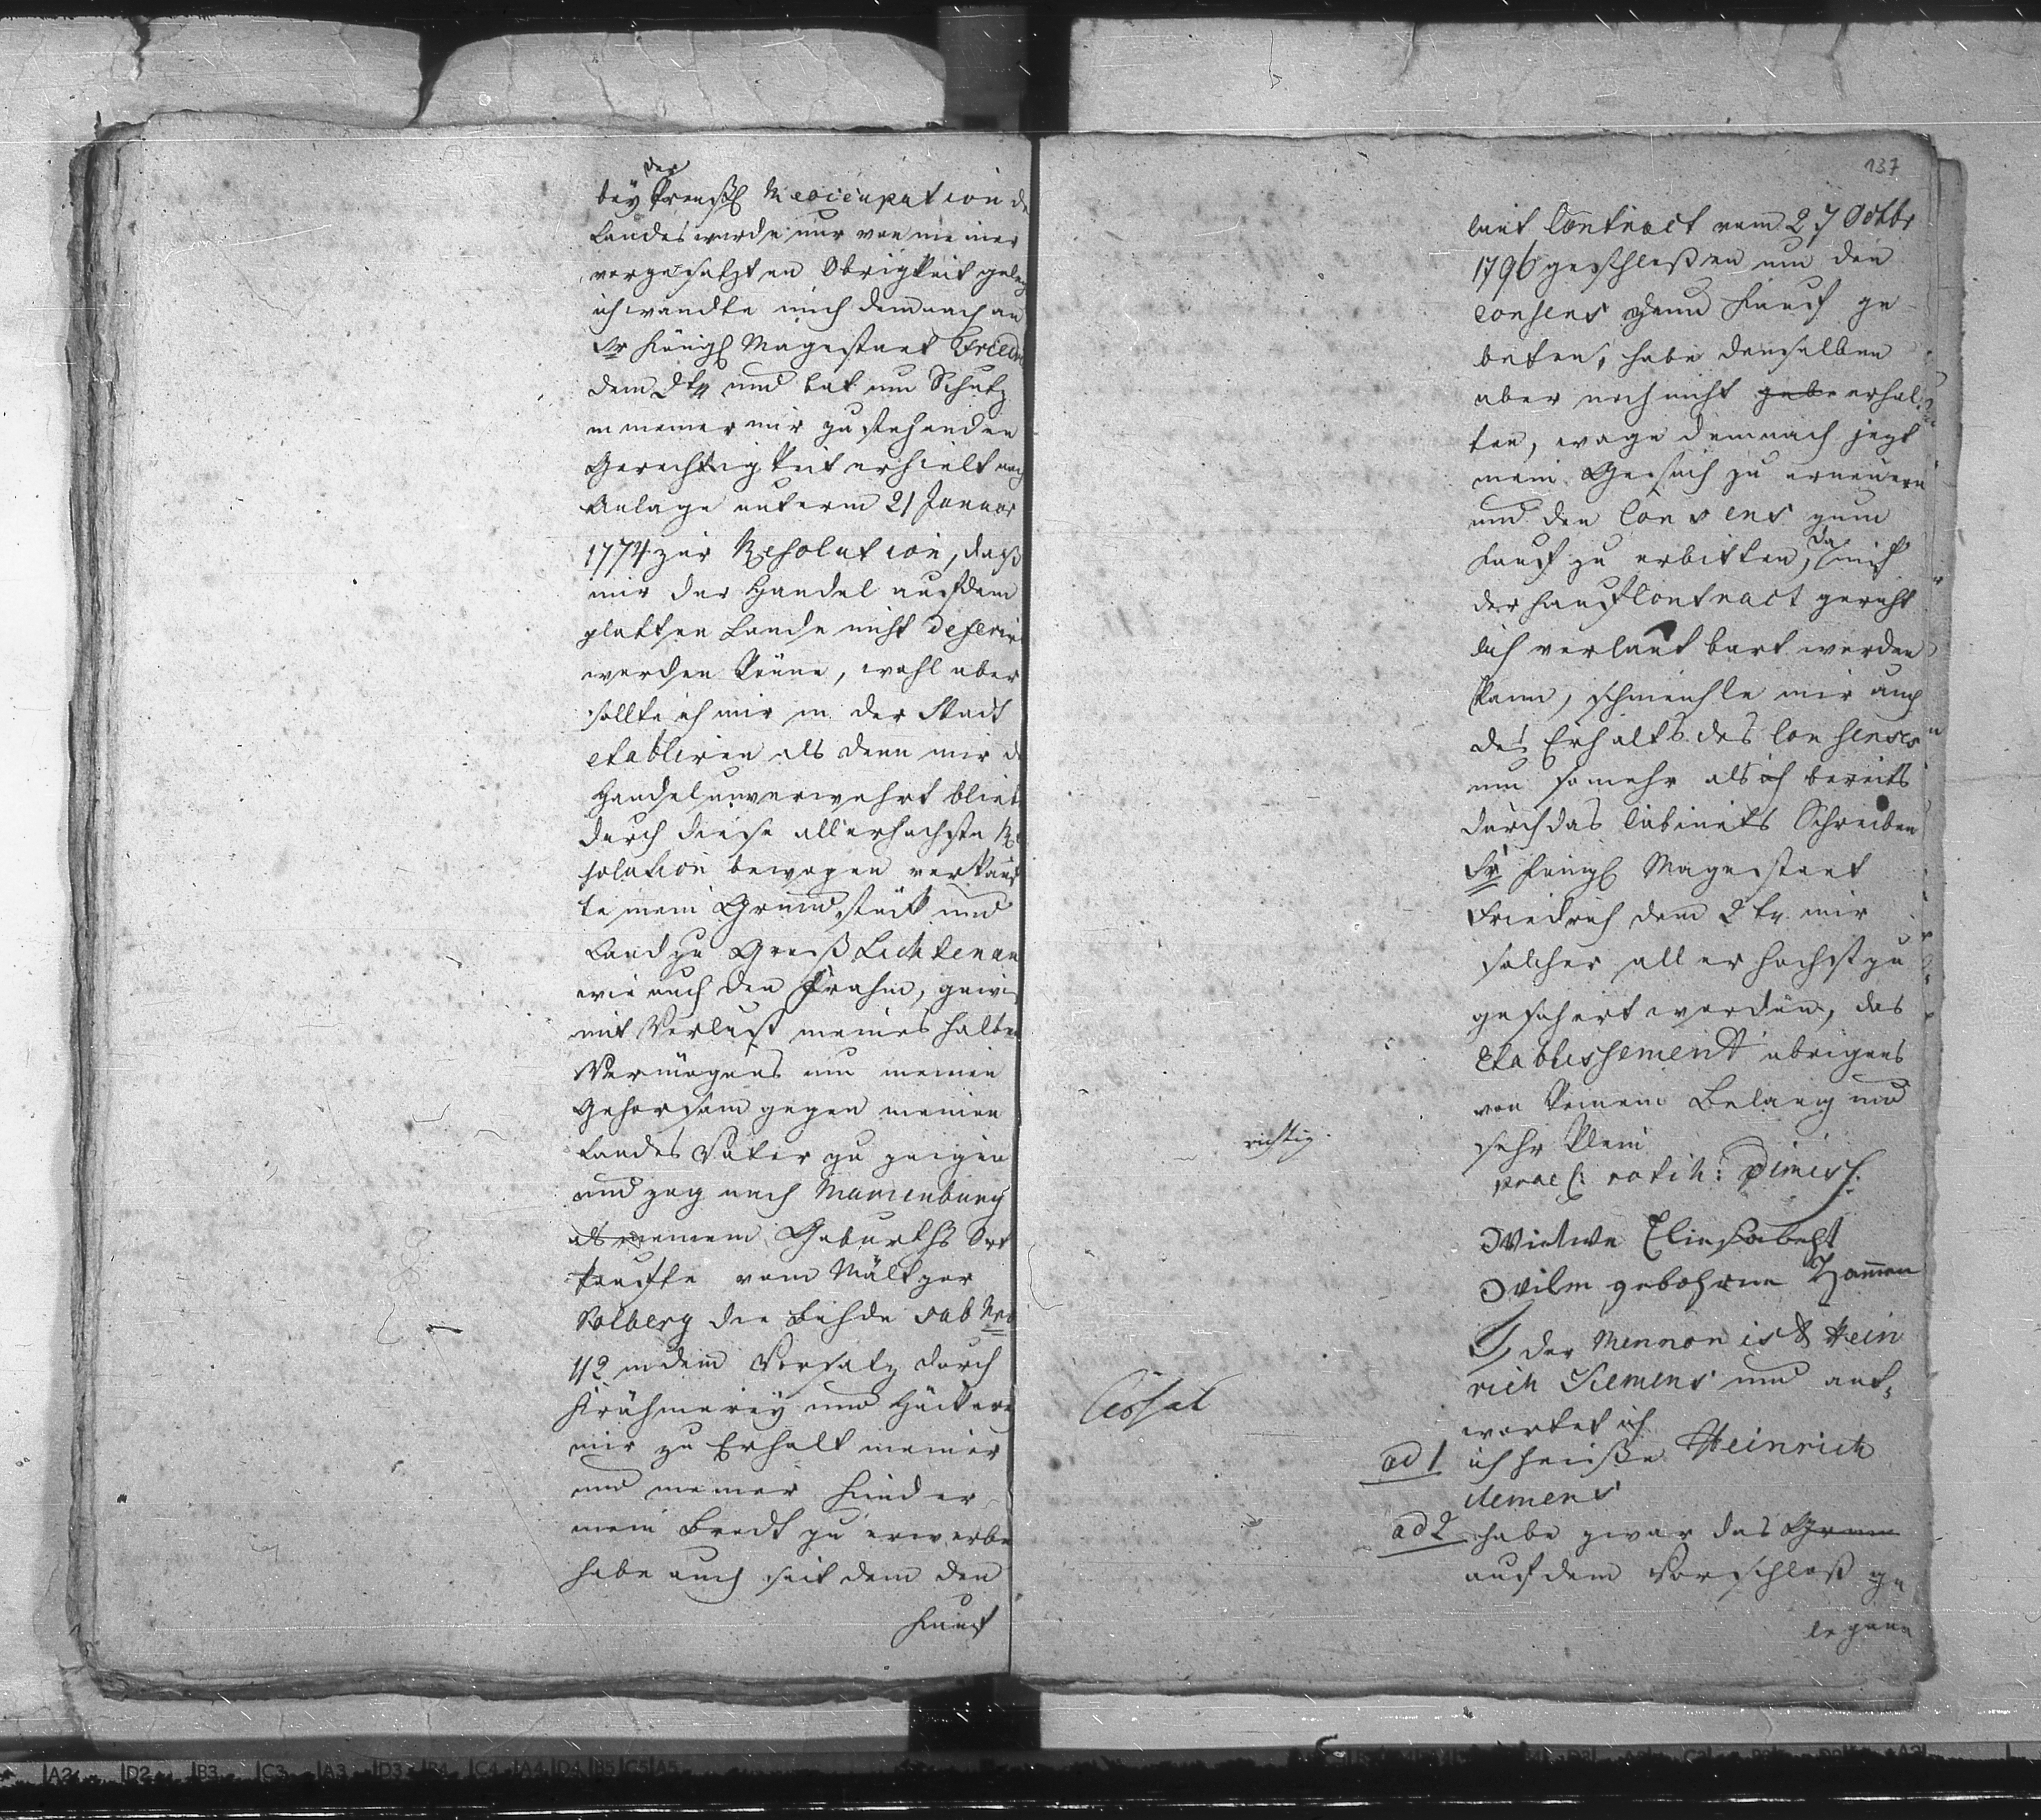 der
bey Preußl Reoccupation de
Landes wurde mir von meiner
vorgesetzten Obrigkeit geleg
ich wandte mich demnach an
Sr Königl Magestaet Friedri
dem 2t und bat um Schutz
in meiner mir zustehenden
Gerechtigkeit erhielt nach
Anlage unterm 21 Januar
1774 zur Resolution, daß
mir der Handel auf dem
platten Lande nicht deferir
werden könne, wohl aber
sollte ich mir in der Stadt
etabliren als denn mir d
Handel unverwehrt bliebe
durch diese allerhochste Re
solution bewogen verkauf
te mein Grundstück und
Land zu Groß Lichtenau
wie auch den Prahm, gewiß
mit Verlust meines halben
Vermögens um meinen
Gehorsam gegen meinen
Landes Vater zu zeigen
und zog nach Marienburg
als meinem Geburths Ort
kaufte vom Mältzer
Solberg die Bude sub Nro
112 in dem Vorsatz durch
Krähmerey und Häckerey
mir zu Erhalt meiner
und meiner Kinder
mein Brodt zu erwerbe
habe auch seit dem den
Kauf
137
laut Contract vom 27 Octbr
1796 geschloßen um den
Consens zum Kauf ge
beten, habe denselben
aber noch nicht gebe erhal
ten, wage demnach jezt
mein Gesuch zu erneuern
und den Consens zum
Kauf zu erbitten, da mit
der Kauf Contract gericht
lich verlautbart werden
kann, schmeichle mir auch
des Erhalts des Consenses
um somehr als ich bereits
durch das Cabinets Schreiben
Sr Königl Magestaet
Friedrich dem 2t mir
solcher allerhochst zu
gesichert worden, das
Etablissement übrigens
von keinem Belang und
sehr klein
richtig.
prael: ratih: dimiss.
Wietwe Eliesabeht
Wilm gebohrne Hamen
der Mennonist Hein
rich Siemens und ant
Cessat
wortet ich
ad 1 ich heiße Heinrich
Siemens
ad 2 habe zwar das Grun
auf dem Vorschloß ge
legene